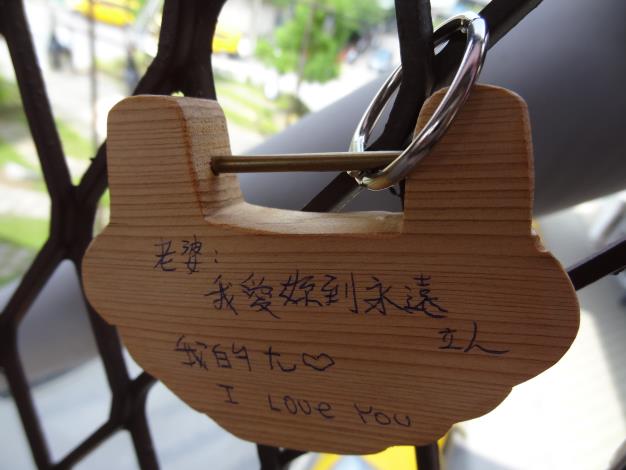 老婆：
我愛妳到永遠
我的
I Love You